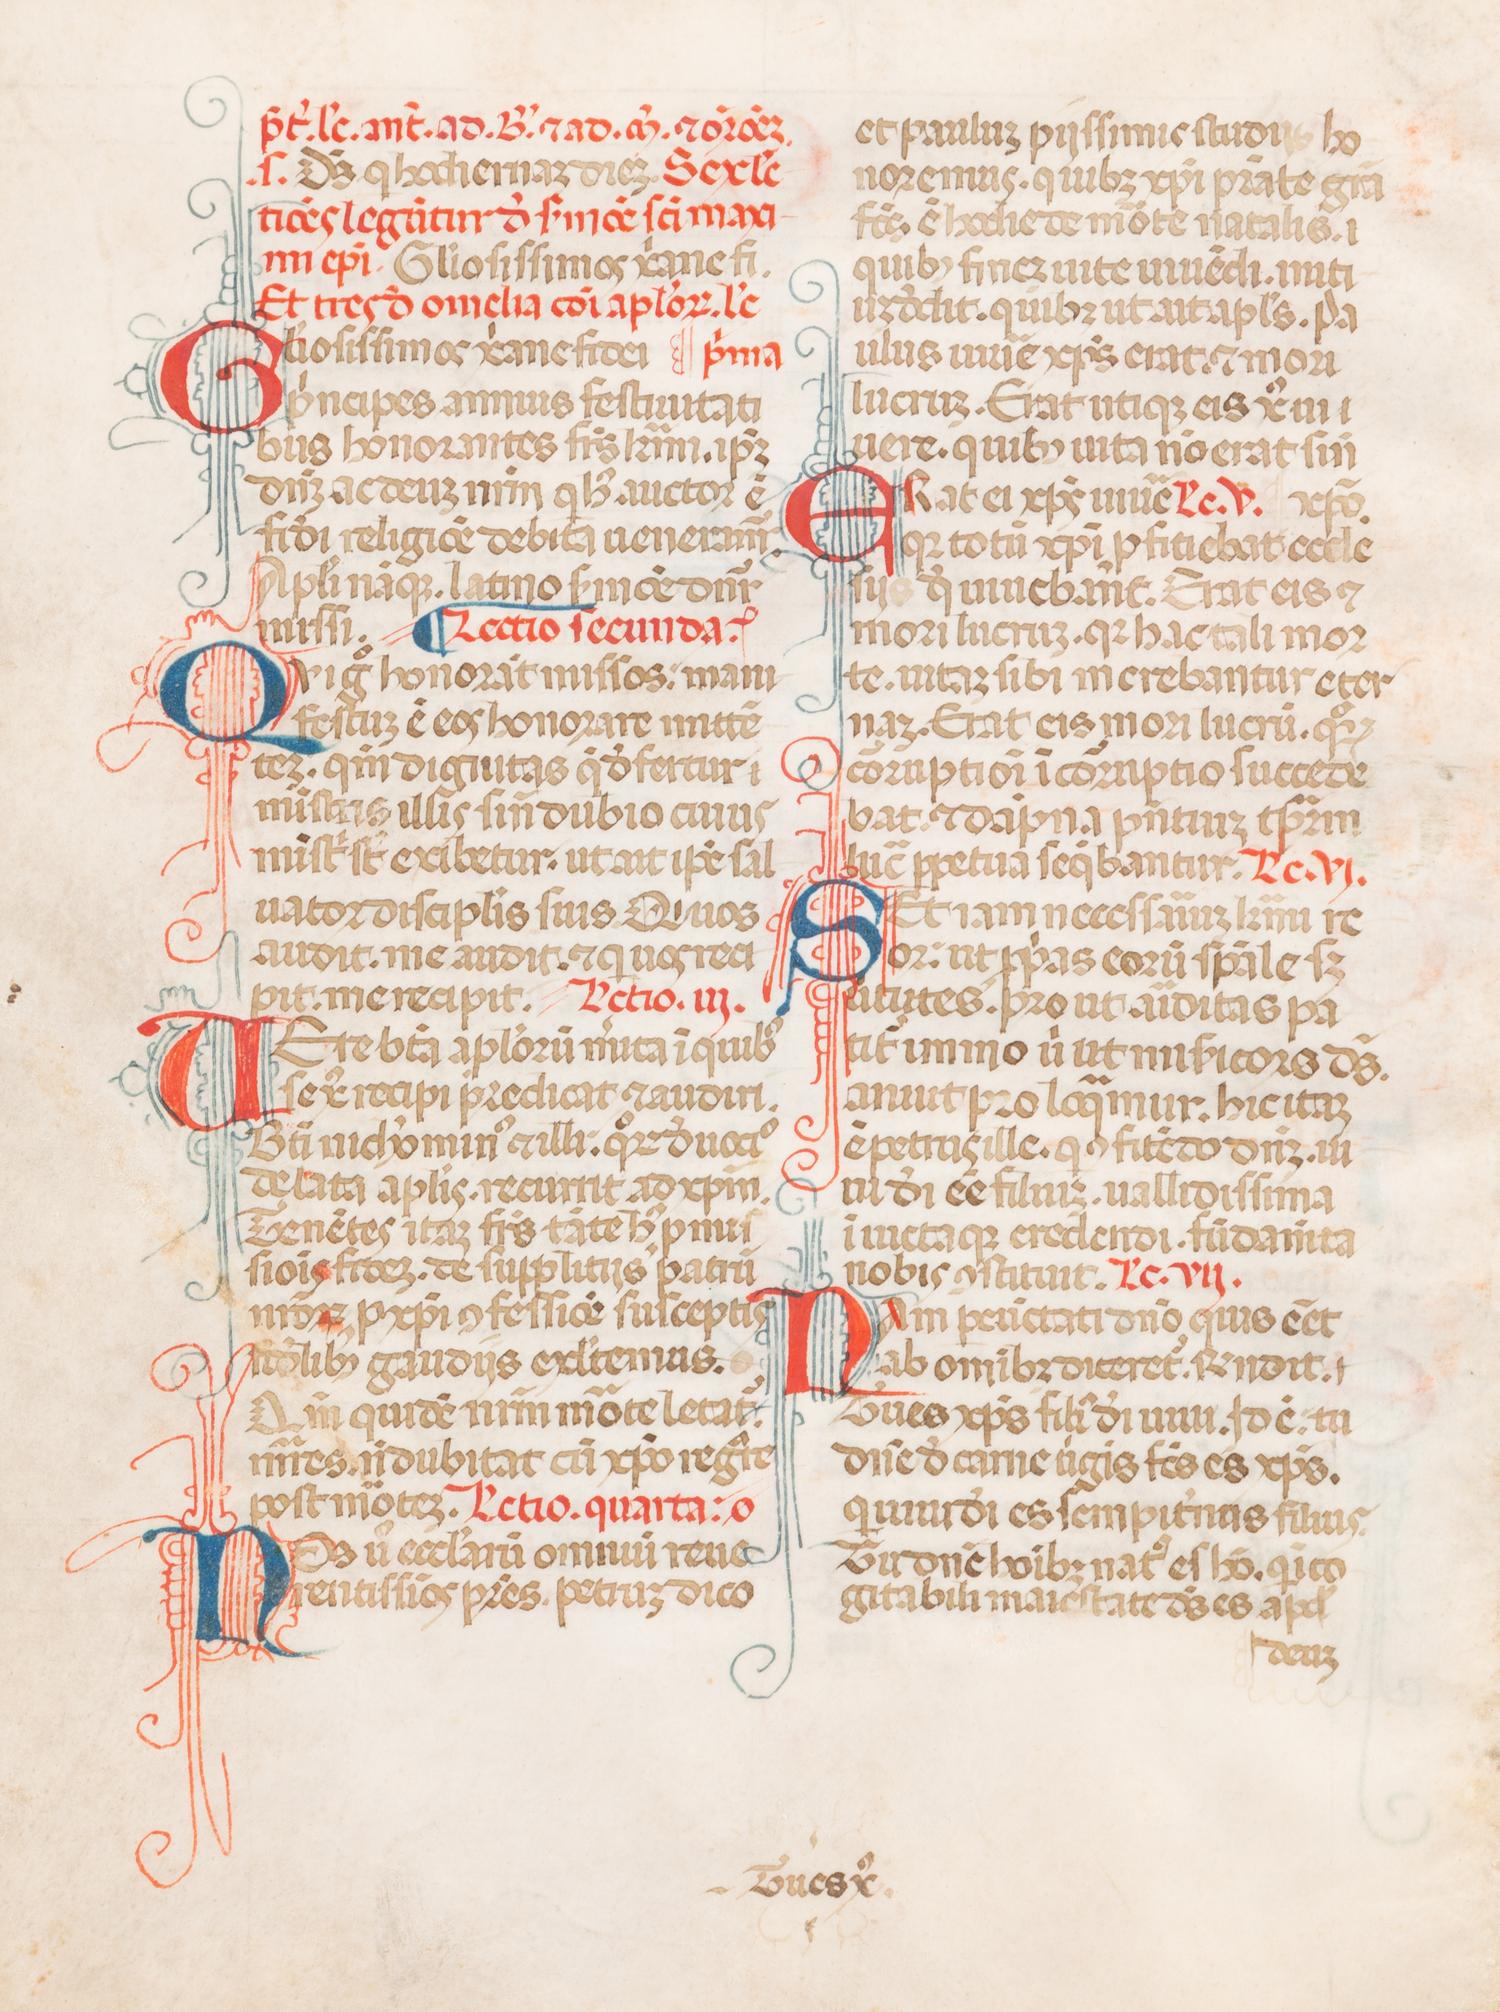 p̄t̄. lc̄. ant̄. ad. B̄. ⁊ ad. m̄. ⁊ or̄oēz
.s. Ds̄ q hodiernaz diez. Sex lc̄
tiōes legūtur d̄ ẜmōe sc̄i maxi
mi ep̄i. Gl̄iosissimos x̄ane fi.
Et tres d̄ omelia cōi apl̄oꝝ. lc̄
p̄ma
Gl̄iosissimos x̄ane fidei
p̄ncipes annuis festiuitati
bus honorantes fr̄s kr̄mi. ip̄z
dn̄z ac deuz nr̄m q h̄. auctor ē
fidi religiōe debita ueneram̄r
Apl̄i nāqꝫ. latino ẜmōe dn̄r
missi. Lectio secunda.
Qvi g̊ honorāt missos: mani
festuz ē eos honorare mittē
tez. qm̄ dignitas q̄ dfertur i
mīstris illis sin̄ dubio cuius
exibetur. ut ait ip̄e sal
uator discipl̄is suis Quos
audit. me audit. ⁊ quos reci
pit. me recipit. Lctio. iij.
Ere bt̄a apl̄orū m̄ita ī quib⁹
se x̄ recipi predicat ⁊ audiri.
Bt̄i nich̄omin⁹ ⁊ illi. qꝝ d̄uocī⁹
delata apl̄is. recurrit ad xp̄m.
Tenētes itaz fr̄s
siois fidez. de suppliciis patrū
nr̄oꝝ p xp̄i ꝯfessiōe susceptis
gaudijs exl̄temus.
Qm̄ quidē nr̄m mōte letat̄.
m̄res n̄ dubitat cū xp̄o reg̃re
post mōtez. Lctio. quarta: o
Nos ū eccl̄arū omniū reue
rentissios pr̄es. petruz dico
et pauluz pijssimis studijs ho
noremus. quibꝫ xp̄i p̄rāte grā
fct̄s ē hodie de mōte natalis. i
quibꝫ finez uite uiuēdi. initi
uz dedit. quibꝫ ut ait apl̄s. Pa
ulus uiuē xp̄s erat. ⁊ mori
lucruz. Erat utiqꝫ eis x̄ ui i
uere. quibꝫ uita nō erat sin̄
ERat ei xp̄s uiuē Lc. V. xp̄o.
qꝛ totū xp̄i pfitiebat eccle
sijs q̄ uiueban̄t. Erat eis ⁊
mori lucruz. qꝛ hac tali mor
te. uitaz sibi merebantur eter
naz. Erat eis mori lucrū. qꝛ
corruptioī īcorruptio succede
bat. ⁊ dāpna pn̄tiuz tp̄rm
huc̄ ppetua seq̄bantur. Lc. VI.
SEt iam necessariuz kr̄mi re
or. ut ip̄as eorū sp̄ale sꝫ
uirtutes. prout aūditas pa
tit̄ immo ū ut misēicors ds̄.
anuut proloq̄mur. hic itaz
ē petrus ille. q ꝯfitēdo dn̄z. ui
ui d̄i eē filiuz. uallidissima
iniectaqꝫ credendi. fūdam̄ta
nobis ꝯstituit. Lc. VII.
NAm pcūctati dn̄o quis eēt
ab omībꝫ diceret̄. rn̄dit. i
Tu es xp̄s filī d̄i uiui. Id ē. tu
dn̄e d̄ carne uirgis fct̄s es xp̄s.
qui uiui d̄i es sempit̄nus filius.
Tu dn̄e hoībꝫ nat⁹ es hō. qi ico
gitabili maiestate ds̄ es apd̄
deuz
Tu es x̄.